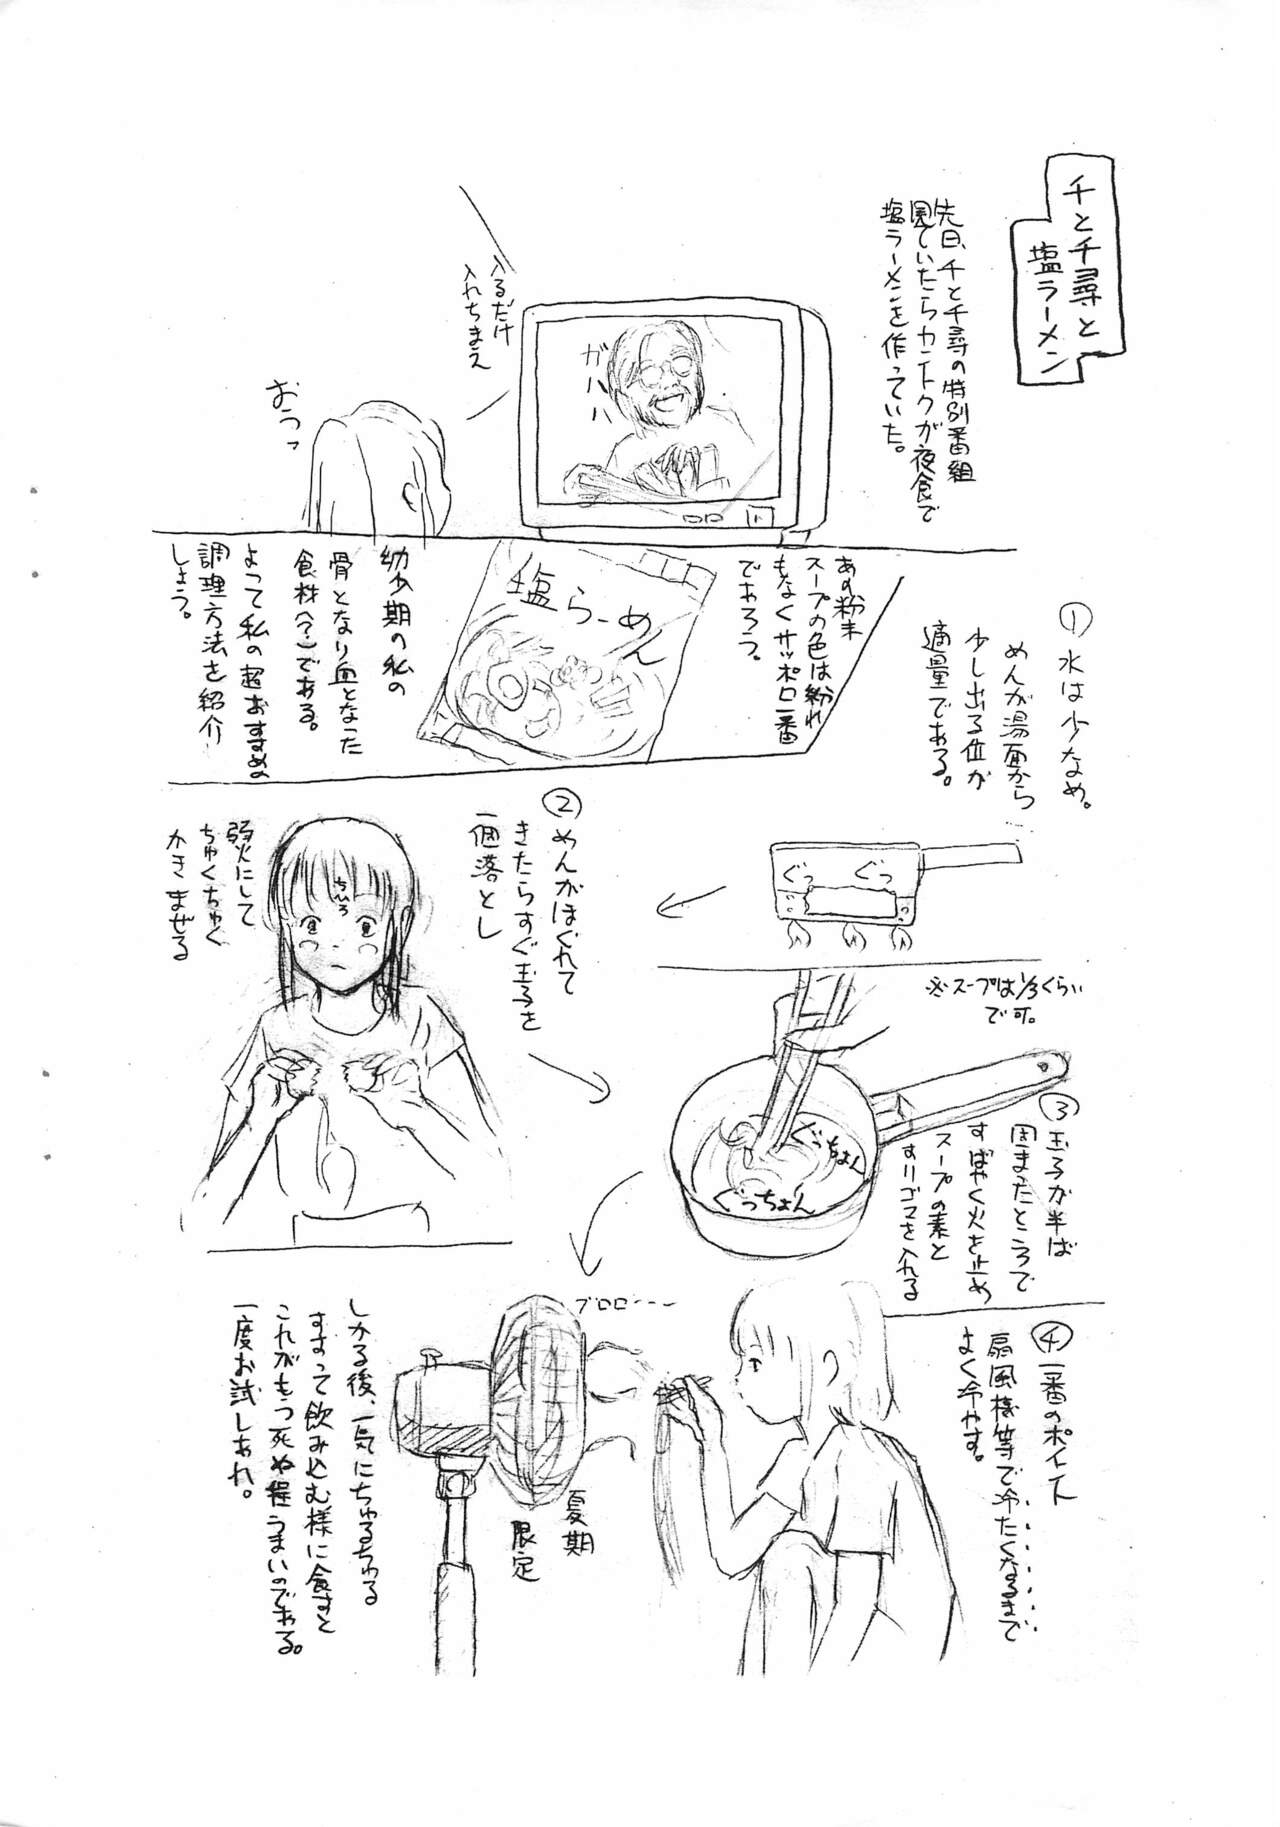 千と千尋と
塩ラーメン
先日、千と千尋の特別番組
見ていたらカントクが夜食で
塩ラーメンを作っていた。
ガハハハ
入るだけ
入れちまえ
おうっ
あの粉末
スープの色は紛れ
もなくサッポロ一番
であろう。
塩らーめん
幼少期の私の
骨となり血となった
食材(?)である。
よって私の超おすすめの
調理方法を紹介
しよう。
①水は少なめ。
めんが湯面から
少し出る位が
適量である。
ぐっ
ぐっ
②めんがほぐれて
きたらすぐ玉子を
一個落とし
ちひろ
弱火にして
ちゅくちゅく
かきまぜる
※スープは1/3くらい
で可。
ぐっちょん
ぐっちょん
③玉子が半ば
固まったところで
すばやく火を止め
スープの素と
すりゴマを入れる
④一番のポイント
扇風機等で冷たくなるまで
よく冷やす。
ブロロ～～
夏期
限定
しかる後、一気にちゅるちゅる
すすって飲み込む様に食すと
これがもう死ぬ程うまいのである。
一度お試しあれ。